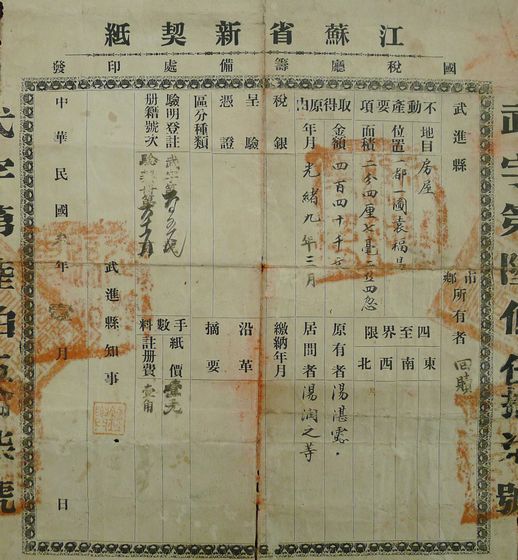 江蘇省新契紙
國稅廳籌備處印發
武字第陸伯伍拾柒號
武進縣
市鄉
所有者
不動產要項
地目 房屋
位置 一都一圖袁福號
面積 二分四厘七毫二丝四忽
四至界限
東
南
西
北
取得原由
金額 四百四十千文
年月 光緒九年三月
原有者 湯湛雲
居間者 湯潤之等
稅銀
繳納年月
呈驗憑證
區分種類
沿革摘要
驗明登註册籍號次
手數料
紙價 壹元
註册費 壹角
武進縣知事
中華民國 年 壹月 日
武字第陸伯伍拾柒號